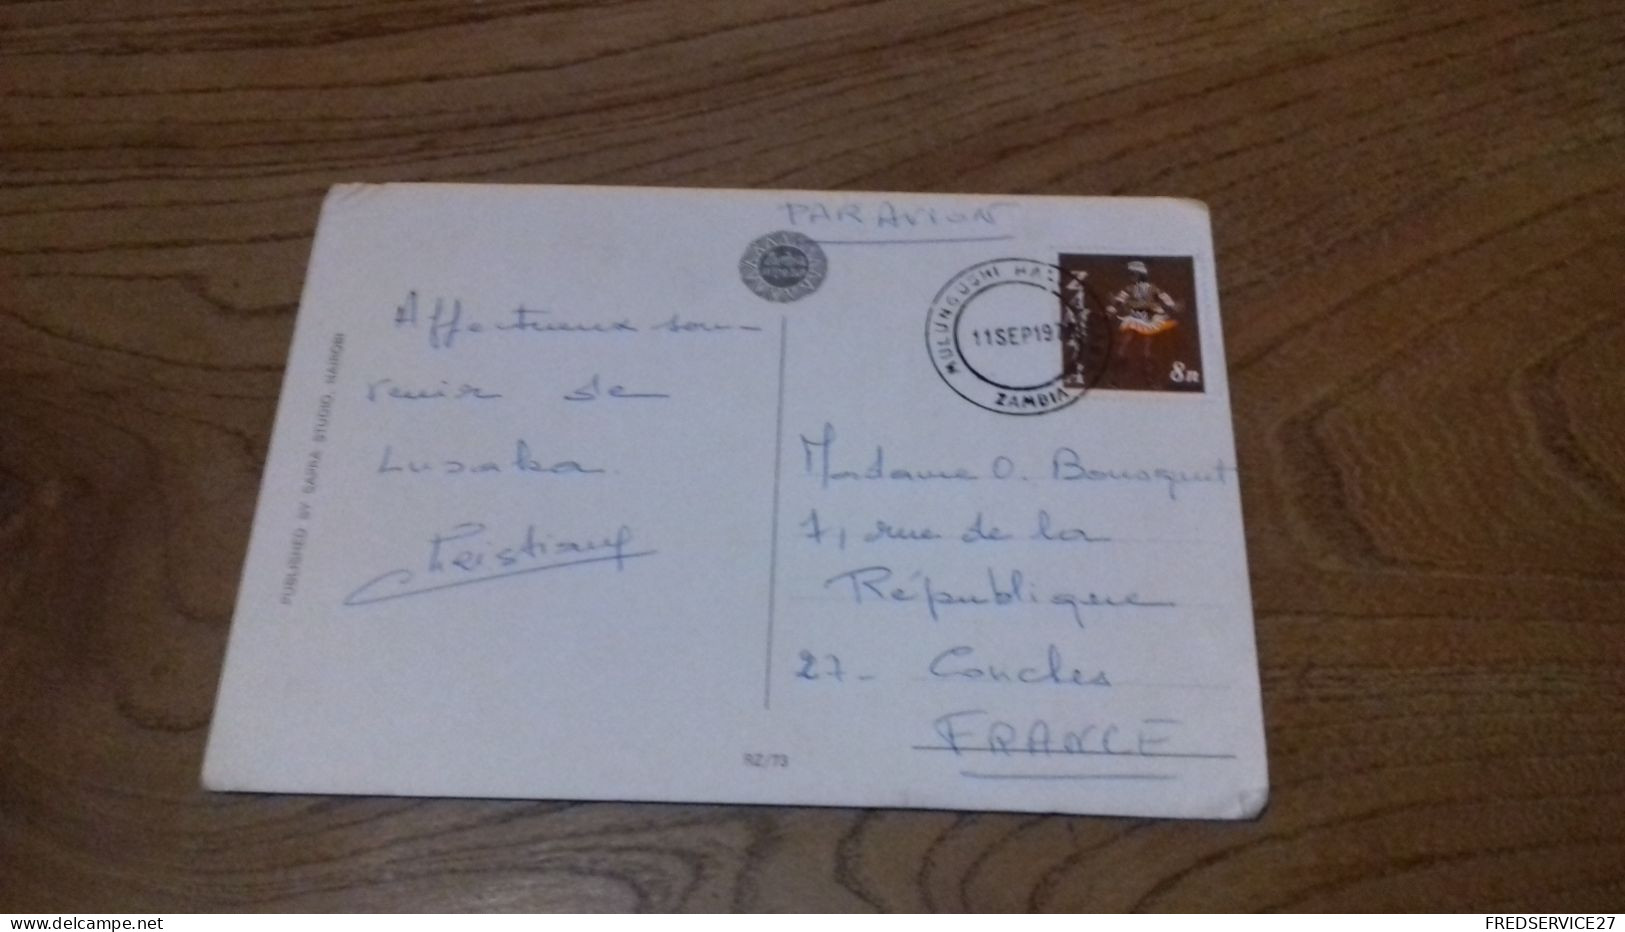 PAR AVION
MULUNGUSHI HA
11 SEP 197
ZAMBIA
ZAMBIA
8n
Affectueux sou-
venir de
Lusaka.
Madame O. Bousquet
7, rue de la
République
27- Conches
FRANCE
PUBLISHED BY SAPRA STUDIO, NAIROBI
RZ/73
www.delcampe.net
FREDSERVICE27